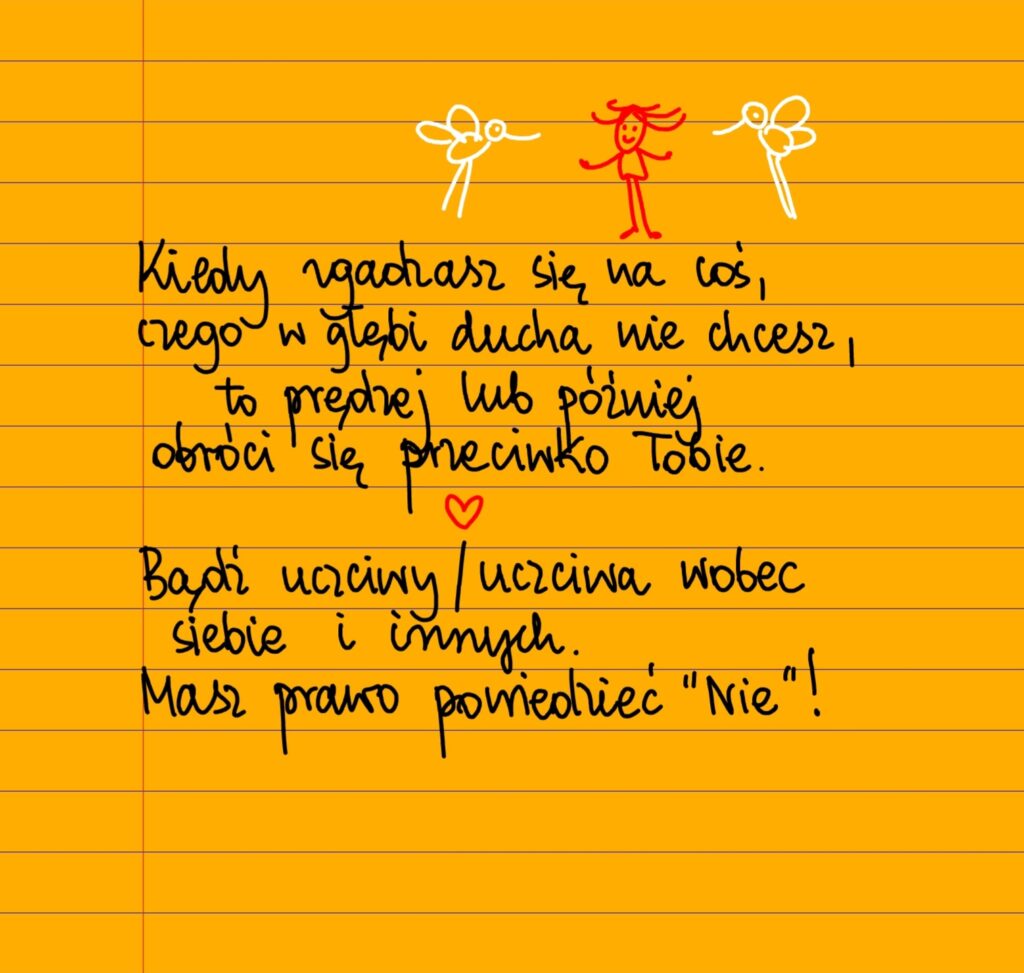 Kiedy zgadzasz się na coś,
czego w głębi ducha nie chcesz,
to prędzej lub później
obróci się przeciwko Tobie.
Bądź uczciwy/uczciwa wobec
siebie i innych.
Masz prawo powiedzieć "Nie"!